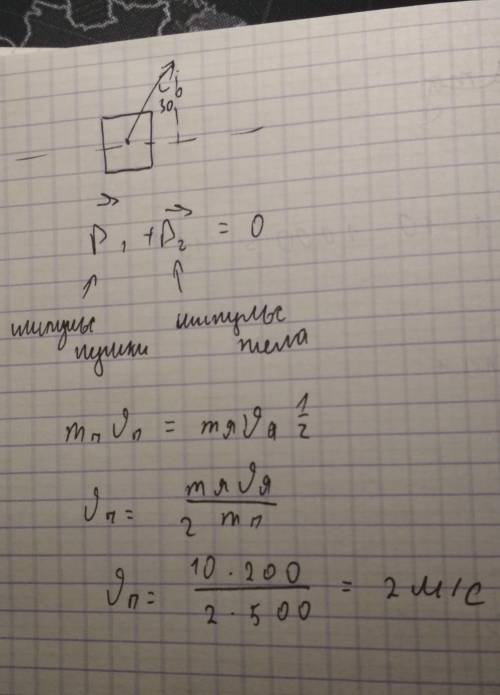 30
P₁ + P₂ = 0
импульс пушки
импульс тела
mп ϑп = mя ϑя 1/2
ϑп = mя ϑя / 2 mп
ϑп = 10 · 200 / 2 · 500 = 2 м/с